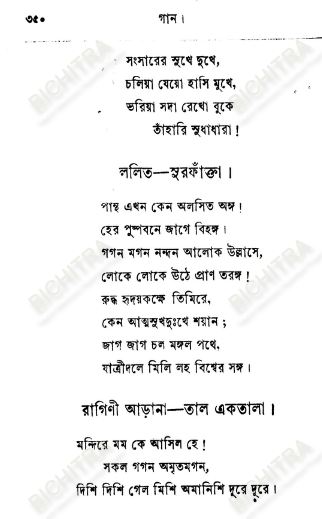 ৩৫০ গান।
সংসারের সুখে দুখে,
চলিয়া যেয়ো হাসি মুখে,
ভরিয়া সদা রেখো বুকে
তাঁহারি সুধাধারা!
ললিত—সুরফাঁক্তা।
পান্থ এখন কেন অলসিত অঙ্গ!
হের পুষ্পবনে জাগে বিহঙ্গ।
গগন মগন নন্দন আলোক উল্লাসে,
লোকে লোকে উঠে প্রাণ তরঙ্গ!
রুদ্ধ হৃদয়কক্ষে তিমিরে,
কেন আত্মসুখদুঃখে শয়ান;
জাগ জাগ চল মঙ্গল পথে,
যাত্রীদলে মিলি লহ বিশ্বের সঙ্গ।
রাগিণী আড়ানা—তাল একতালা।
মন্দিরে মম কে আসিল হে!
সকল গগন অমৃতমগন,
দিশি দিশি গেল মিশি অমানিশি দূরে দূরে।
BICHITRA
BICHITRA
BICHITRA
BICHITRA
BICHITRA
BICHITRA